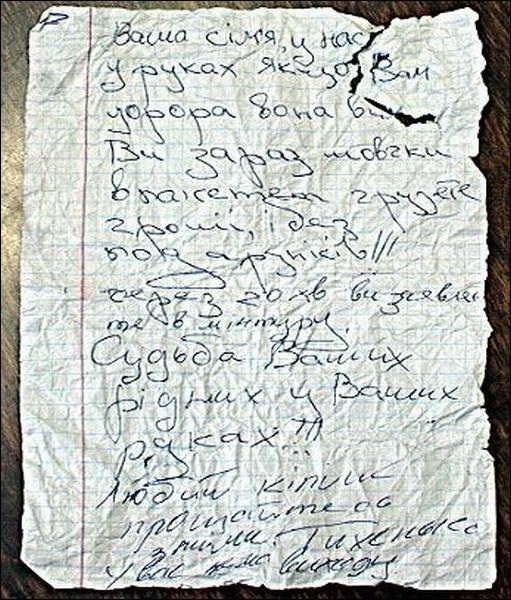 Ваша сім'я, у нас
у руках якщо Вам
дорора вона
Ви зараз мовчки
в пакетет грузете
гроші, і без
подарунків!!!
через 20 хв ви
те в мінтуру.
Судьба Ваших
рідних у Ваших
руках!!!
Любий кіпиш
прощайтесь
з ними. Тихенько
У вас нема виходу